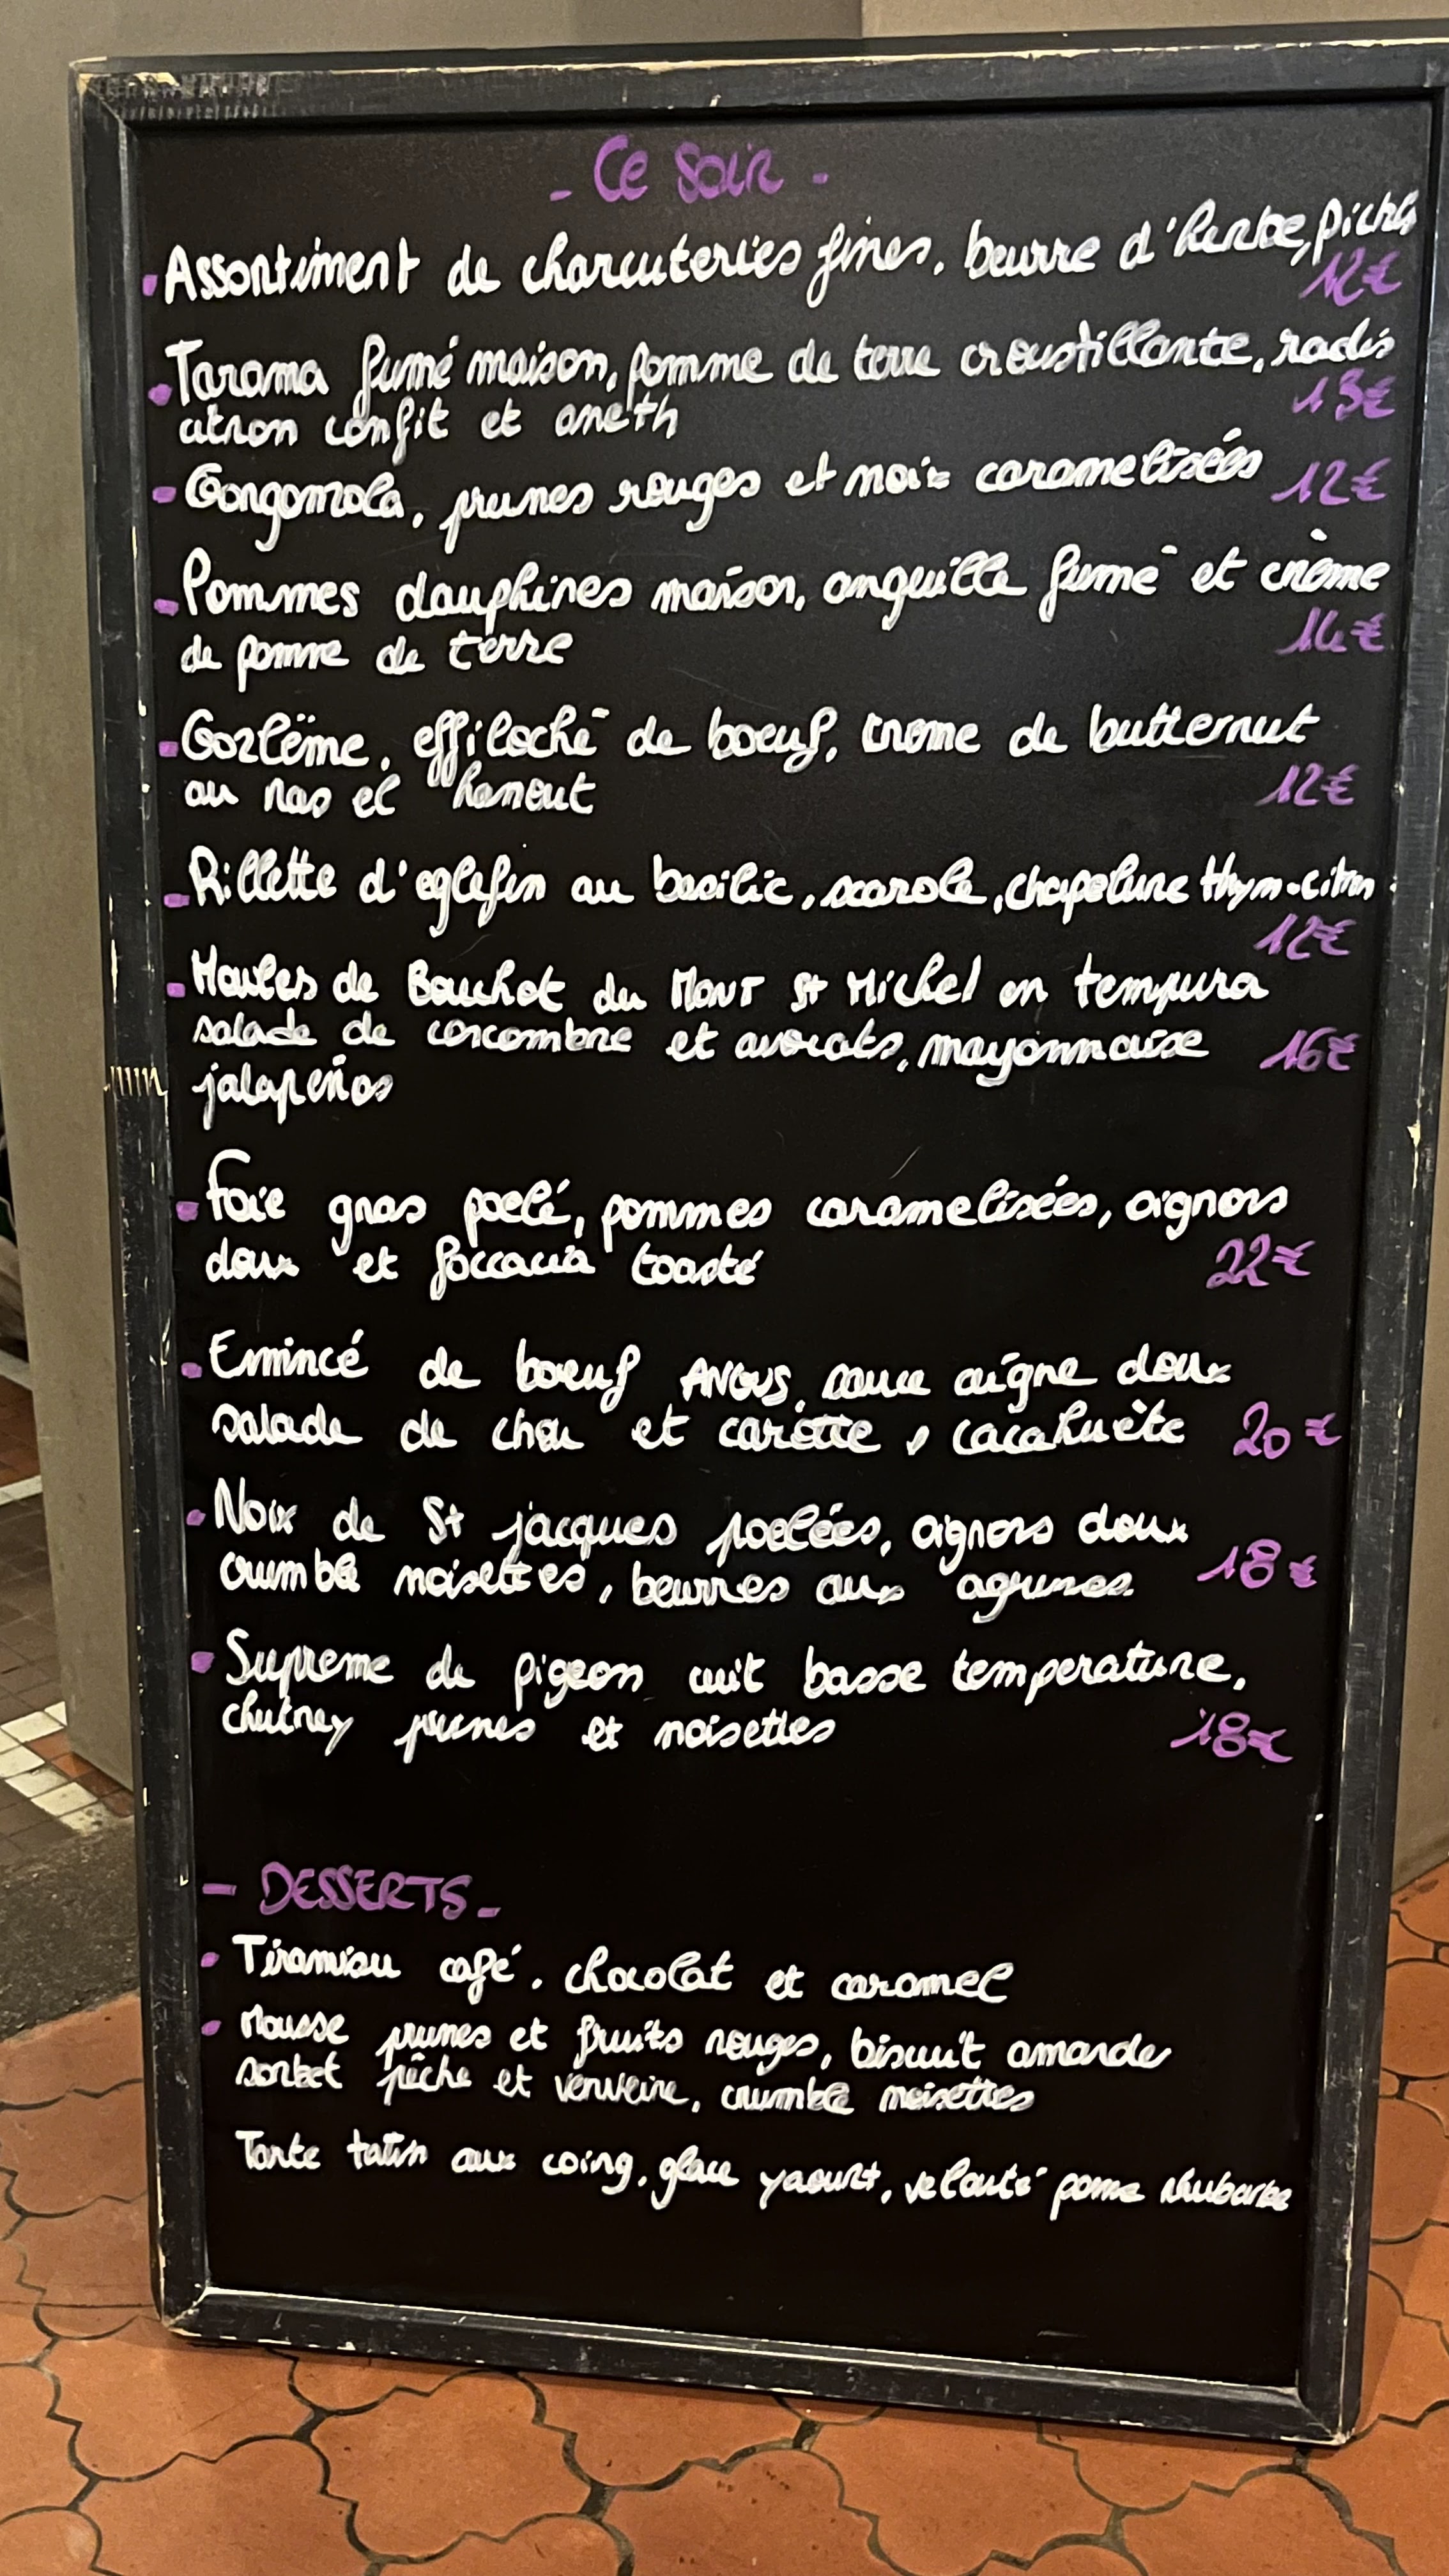 - Ce soir -
Assortiment de charcuteries fines, beurre d'herbe, pickles
12€
Tarama fumé maison, pomme de terre croustillante, radis
citron confit et aneth
13€
Gorgonzola, prunes rouges et noix caramelisées 12€
Pommes dauphines maison, anguille fumé et crème
de pomme de terre
14€
Gozlëme, effiloché de boeuf, creme de butternut
au ras el hanout
12€
Rillette d'eglefin au basilic, scarole, chapelure thym-citron
12€
Moules de Bouchot du Mont St Michel en tempura
salade de concombre et avocats, mayonnaise 16€
jalapeños
Foie gras poelé, pommes caramelisées, oignons
doux et foccacia toasté
22€
Emincé de boeuf ANGUS, sauce aigre doux
salade de chou et carotte, cacahuète 20€
Noix de St jacques poelées, oignons doux
crumble noisettes, beurres aux agrumes. 18€
Supreme de pigeon cuit basse temperature,
chutney prunes et noisettes
18€
- DESSERTS -
Tiramisu café, chocolat et caramel
Mousse prunes et fruits rouges, biscuit amande
sorbet pêche et verveine, crumble noisettes
Tarte tatin aux coing, glace yaourt, velouté pome rhubarbe